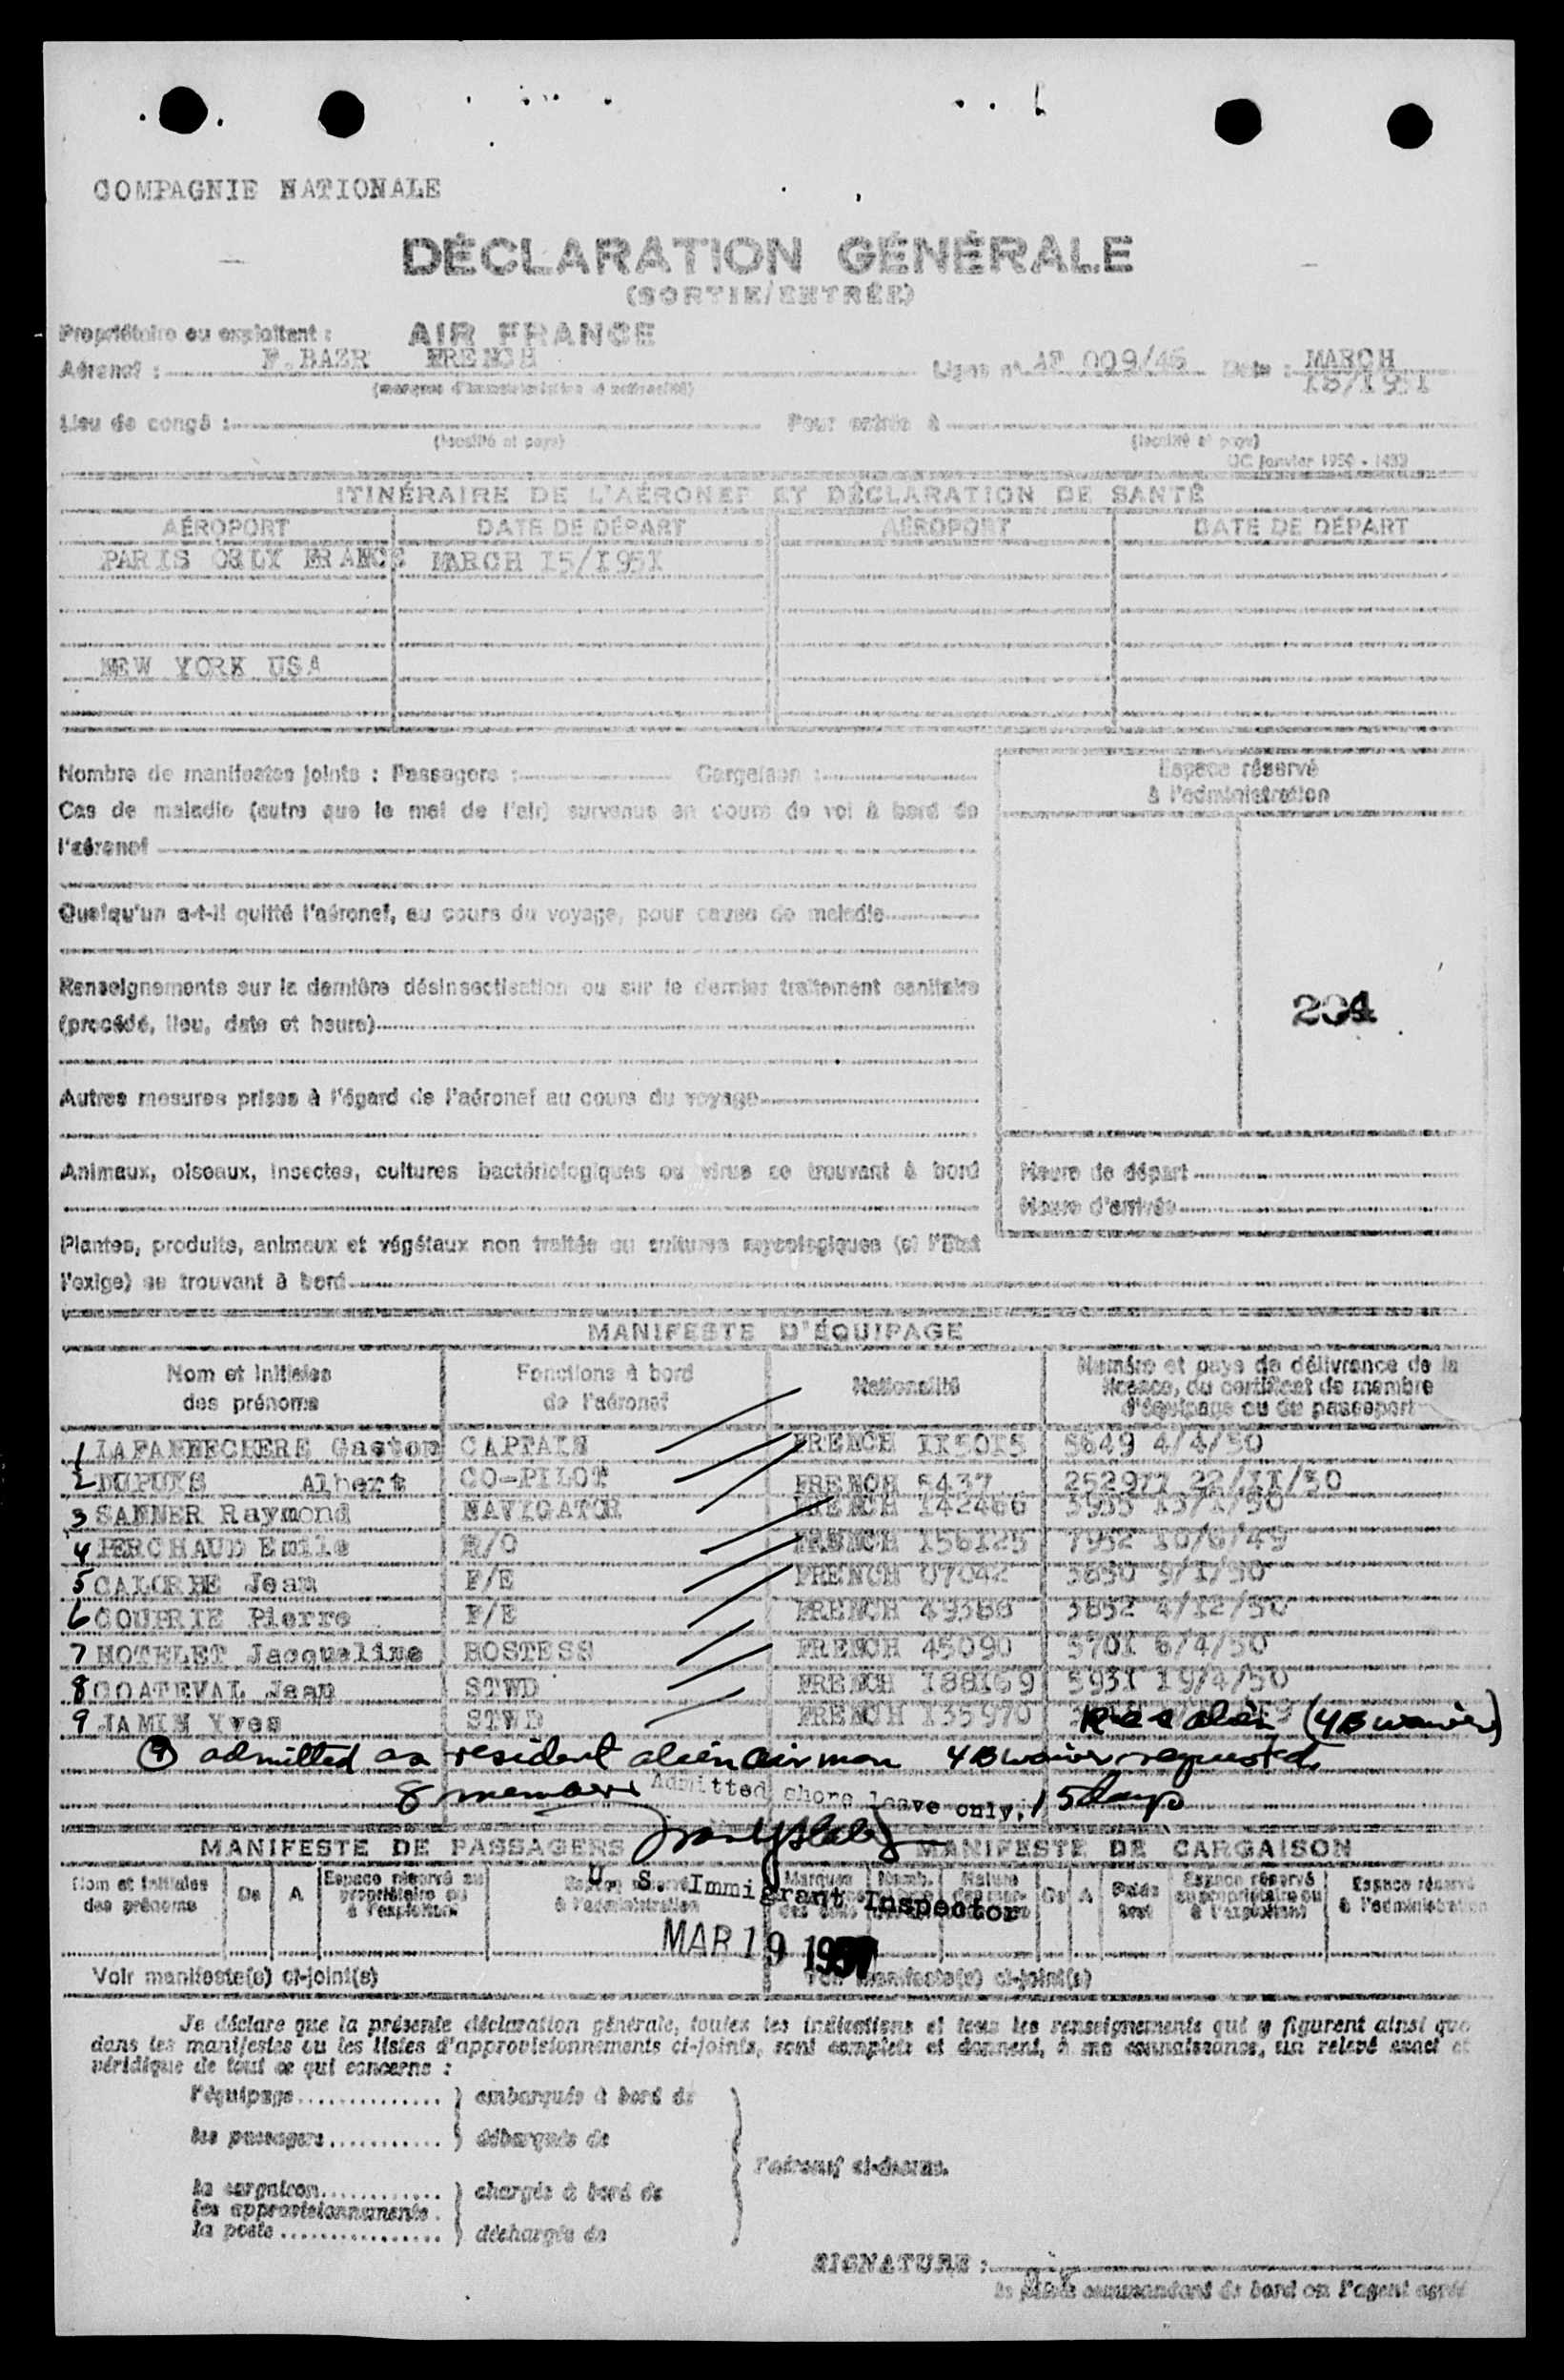 COMPAGNIE NATIONALE
DÉCLARATION GÉNÉRALE
(SORTIE/ENTRÉE)
Propriétaire ou exploitant : AIR FRANCE
Aéronef : F.BAZR FRENCH Ligne n° AF 009/45 Date : MARCH
(marques d'immatriculation et nationalité) 15/1951
Lieu de congé : Pour entrée à
(localité et pays) (localité et pays)
OC Janvier 1950 -
ITINÉRAIRE DE L'AÉRONEF ET DÉCLARATION DE SANTÉ
AÉROPORT DATE DE DÉPART AÉROPORT DATE DE DÉPART
PARIS ORLY FRANCE MARCH 15/1951
NEW YORK USA
Nombre de manifestes joints : Passagers : Cargaison :
Espace réservé
à l'administration
Cas de maladie (autre que le mal de l'air) survenus en cours de vol à bord de
l'aéronef
Quelqu'un a-t-il quitté l'aéronef, au cours du voyage, pour cause de maladie
Renseignements sur la dernière désinsectisation ou sur le dernier traitement sanitaire
(procédé, lieu, date et heure)
204
Autres mesures prises à l'égard de l'aéronef au cours du voyage
Animaux, oiseaux, insectes, cultures bactériologiques ou virus se trouvant à bord
Heure de départ
Heure d'arrivée
Plantes, produits, animaux et végétaux non traités ou cultures mycologiques (si l'Etat
l'exige) se trouvant à bord
MANIFESTE D'ÉQUIPAGE
Nom et initiales
des prénoms
Fonctions à bord
de l'aéronef
Nationalité
Numéro et pays de délivrance de la
licence, du certificat de membre
d'équipage ou du passeport
1 LAFANNECHERE Gaston CAPTAIN FRENCH II5015 5649 4/4/50
2 DUPUIS Albert CO-PILOT FRENCH 5437 252977 22/II/50
3 SANNER Raymond NAVIGATOR FRENCH 142466 3955 13/1/50
4 PERCHAUD Emile R/O FRENCH 156125 7952 10/6/49
5 CALORBE Jean F/E FRENCH 07042 3850 9/1/50
6 COUPRIE Pierre F/E FRENCH 49388 3852 4/12/50
7 MOTELET Jacqueline HOSTESS FRENCH 45090 5701 6/4/50
8 COATEVAL Jean STWD FRENCH 188169 5931 19/4/50
9 JAMIN Yves STWD FRENCH 135970 Res alien (4B waiver)
(9) admitted as resident alien airman 4B waiver requested
8 members Admitted shore leave only, 15 days
MANIFESTE DE PASSAGERS MANIFESTE DE CARGAISON
Nom et initiales
des prénoms
De A
Espace réservé au
propriétaire ou
à l'exploitant
Espace réservé
à l'administration
Marques
Nomb.
Nature
De A
Poids
brut
Espace réservé
au propriétaire ou
à l'exploitant
Espace réservé
à l'administration
U S Immigrant Inspector
MAR 19 1951
Voir manifeste(s) ci-joint(s) Voir manifeste(s) ci-joint(s)
Je déclare que la présente déclaration générale, toutes les indications et tous les renseignements qui y figurent ainsi que
dans les manifestes ou les listes d'approvisionnements ci-joints, sont complets et donnent, à ma connaissance, un relevé exact et
véridique de tout ce qui concerne :
l'équipage embarqués à bord de
les passagers débarqués de
l'aéronef ci-dessus.
la cargaison chargés à bord de
les approvisionnements
la poste déchargés de
SIGNATURE :
le pilote commandant de bord ou l'agent agréé